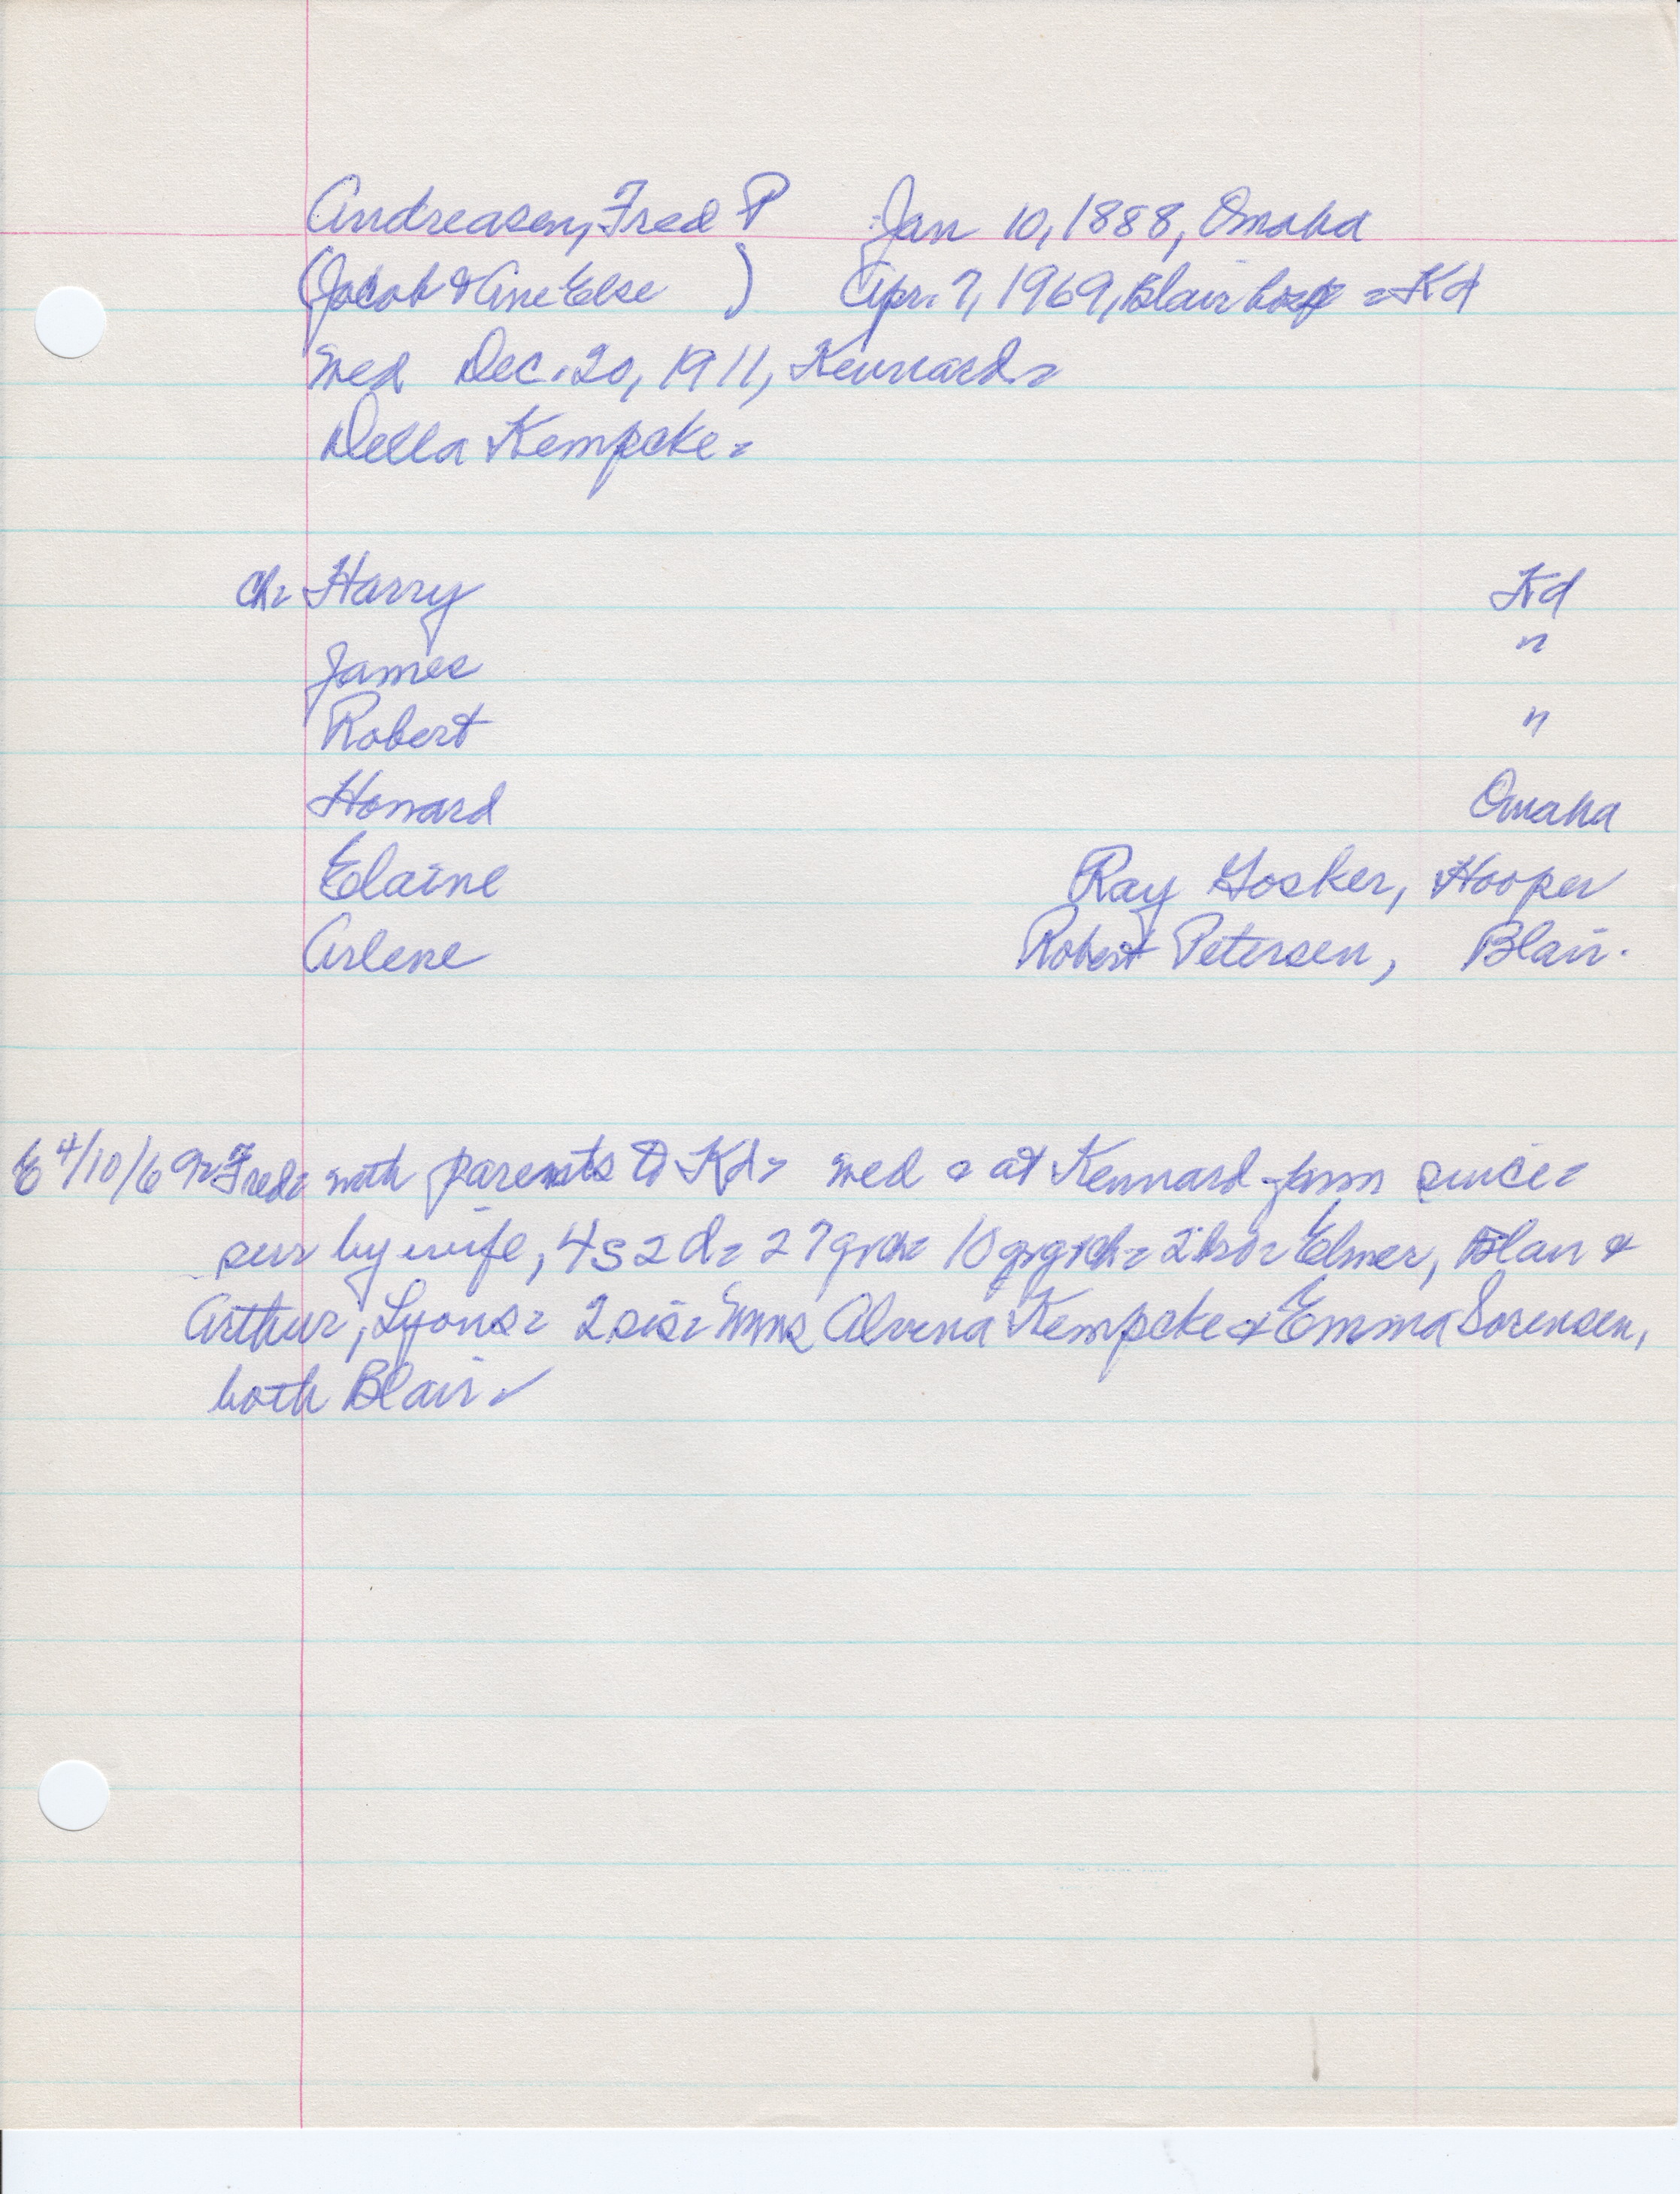 Andreasen, Fred P Jan 10, 1888, Omaha
(Jacob & Ane Else ) Apr. 7, 1969, Blair hosp = Kd
wed Dec. 20, 1911, Kennard=
Della Kempcke=
ch= Harry Kd
James "
Robert "
Howard Omaha
Elaine Ray Gosker, Hooper
Arlene Robert Petersen, Blair.
E 4/10/69= Fred= with parents to Kd= wed & at Kennard farm since=
sur by wife, 4s 2d= 27 grch= 10 grgrch= 2 bro= Elmer, Blair &
Arthur, Lyons= 2 sis= Mms Alvena Kempcke & Emma Sorensen,
both Blair=